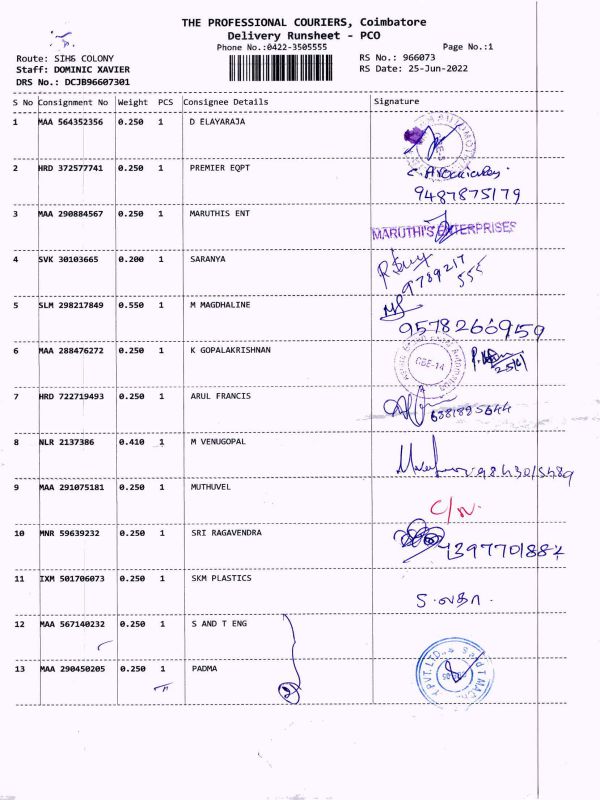 THE PROFESSIONAL COURIERS, Coimbatore
Delivery Runsheet - PCO
Phone No.:0422-3505555 Page No.:1
Route: SIHS COLONY RS No.: 966073
Staff: DOMINIC XAVIER RS Date: 25-Jun-2022
DRS No.: DCJB96607301
S No Consignment No Weight PCS Consignee Details Signature
1 MAA 564352356 0.250 1 D ELAYARAJA
2 HRD 372577741 0.250 1 PREMIER EQPT
9487875179
3 MAA 290884567 0.250 1 MARUTHIS ENT
MARUTHI'S ENTERPRISES
4 SVK 30103665 0.200 1 SARANYA
9789217
555
5 SLM 298217849 0.550 1 M MAGDHALINE
9578266959
6 MAA 288476272 0.250 1 K GOPALAKRISHNAN
CBE-14
25/6
7 HRD 722719493 0.250 1 ARUL FRANCIS
6381895644
8 NLR 2137386 0.410 1 M VENUGOPAL
9 MAA 291075181 0.250 1 MUTHUVEL
C/N.
10 MNR 59639232 0.250 1 SRI RAGAVENDRA
11 IXM 501706073 0.250 1 SKM PLASTICS
S. லதா.
12 MAA 567140232 0.250 1 S AND T ENG
13 MAA 290450205 0.250 1 PADMA
2